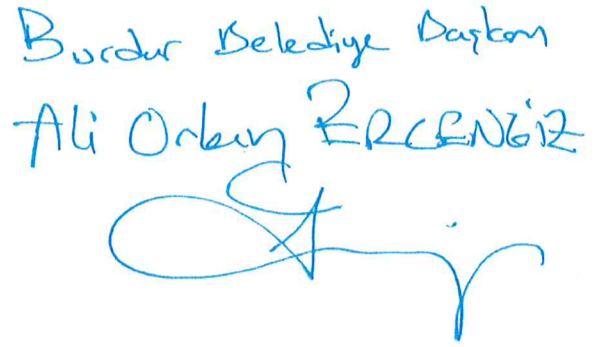 Burdur Belediye Başkanı
Ali Orkun ERCENGİZ